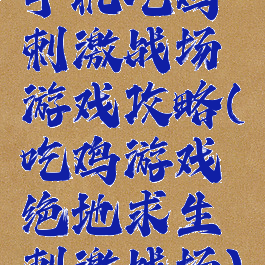 手机吃鸡
刺激战场
游戏攻略(
吃鸡游戏
绝地求生
刺激战场)